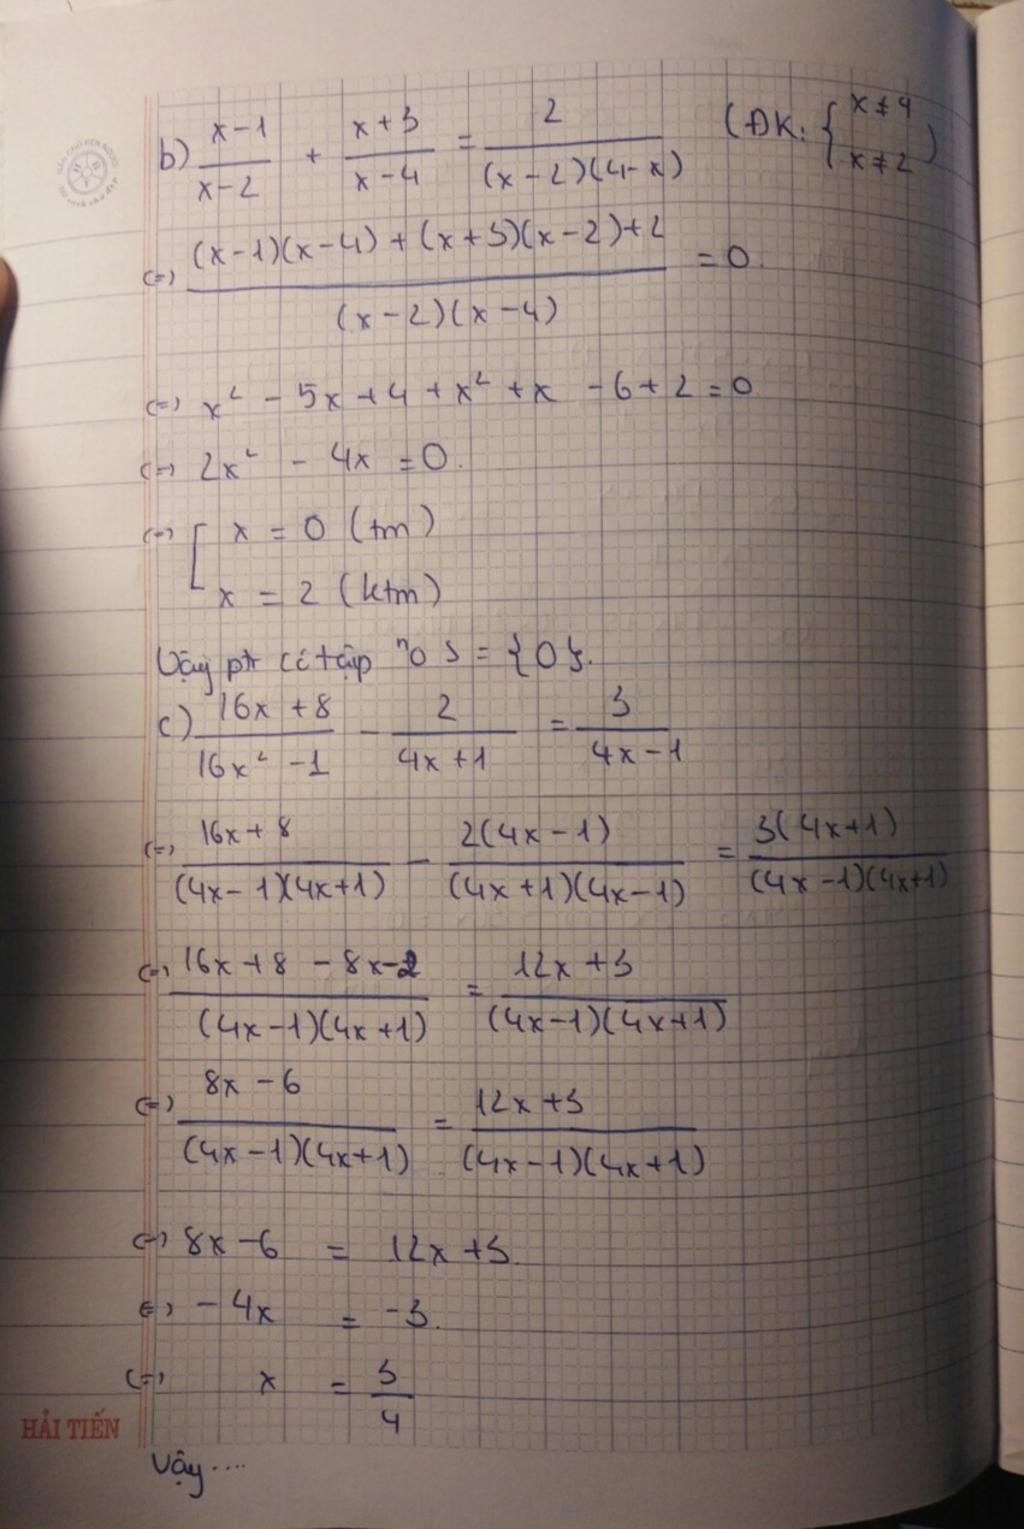 b) (x-1)/(x-2) + (x+3)/(x-4) = 2/((x-2)(4-x)) (ĐK: { x≠4 x≠2 )
(=) ((x-1)(x-4) + (x+3)(x-2)+2)/((x-2)(x-4)) = 0.
(=) x² - 5x + 4 + x² + x - 6 + 2 = 0
(=) 2x² - 4x = 0.
(=) [ x = 0 (tm)
x = 2 (ktm)
Vậy pt có tập no S = {0}.
c) (16x+8)/(16x²-1) - 2/(4x+1) = 3/(4x-1)
(=) (16x+8)/((4x-1)(4x+1)) - 2(4x-1)/((4x+1)(4x-1)) = 3(4x+1)/((4x-1)(4x+1))
(=) (16x+8-8x-2)/((4x-1)(4x+1)) = (12x+3)/((4x-1)(4x+1))
(=) (8x-6)/((4x-1)(4x+1)) = (12x+3)/((4x-1)(4x+1))
(=) 8x-6 = 12x+3.
(=) -4x = -3.
(=) x = 3/4
HẢI TIẾN
Vậy....